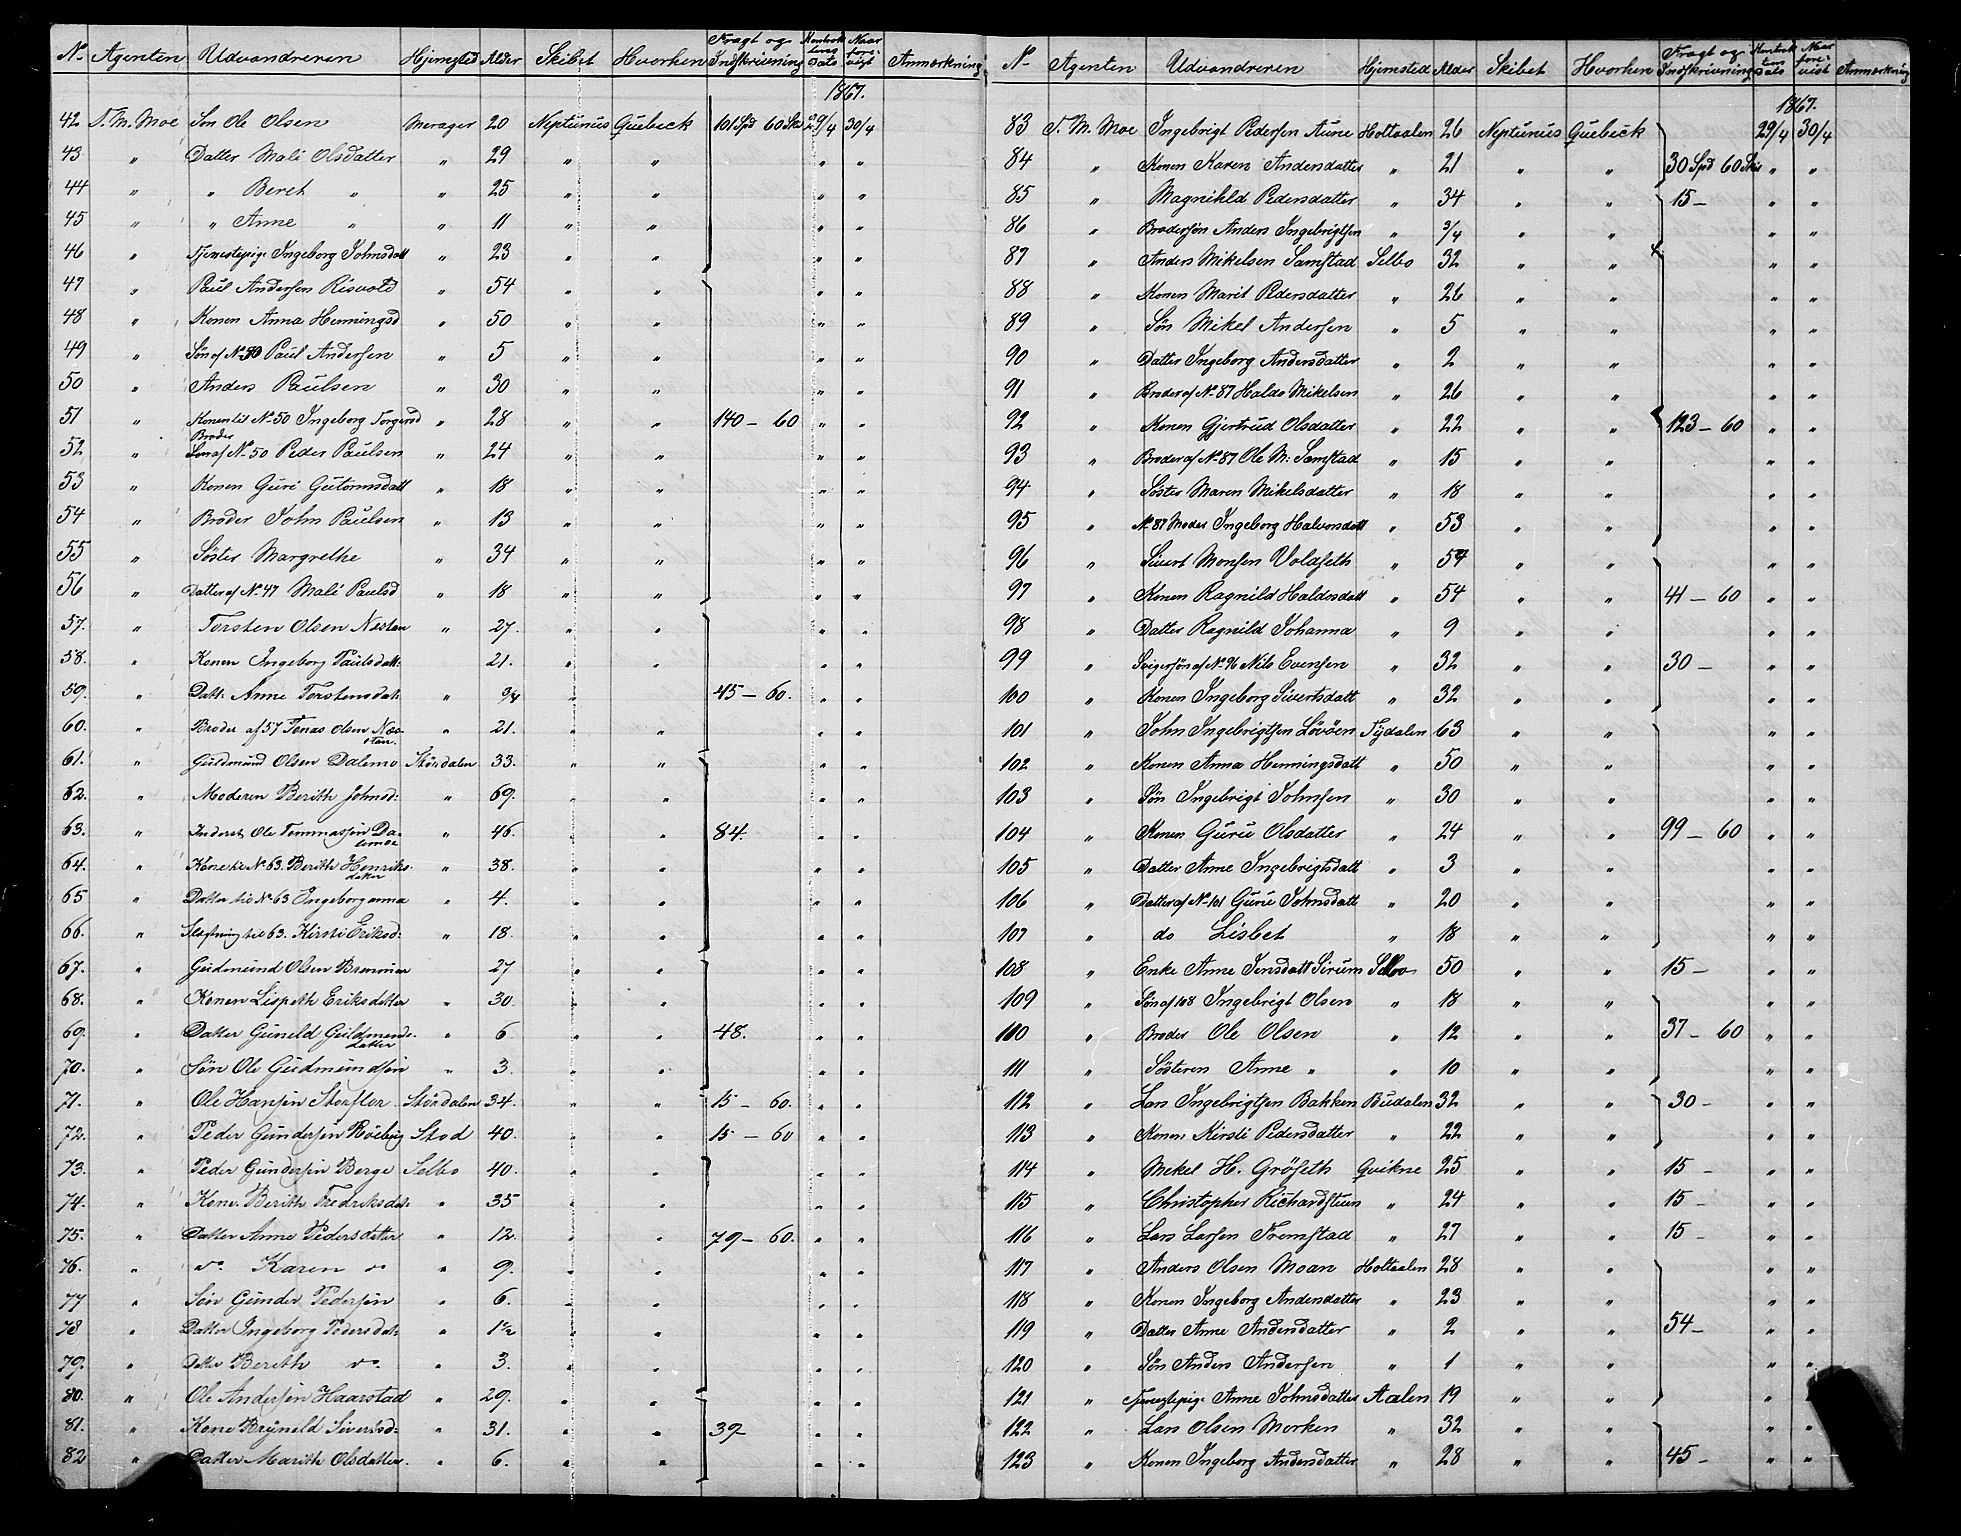 No Agenten Udvandreren Hjemsted Alder Skibet Hvorhen Fragt og Indskrivning Kontraktens Dato Naar forevist Anmærkning
1867.
42 T. M. Moe Søn Ole Olsen Merager 20 Neptunus Quebeck 101 Spd 60 Sk 29/4 30/4
43 " Datter Mali Olsdatter " 29 " " " "
44 " " Beret " " 25 " " " "
45 " " Anne " " 11 " " " "
46 " Tjenestepige Ingeborg Johnsdatt " 23 " " " "
47 " Paul Andersen Risvold " 54 " " " "
48 " Konen Anna Henningsd " 50 " " " "
49 " Søn af No 50 Paul Andersen " 5 " " " "
50 " Anders Paulsen " 30 " " " "
51 " Konen til No 50 Ingeborg Torgersd " 28 " " 140 - 60 " "
Broder
52 " Søn af No 50 Peder Paulsen " 24 " " " "
53 " Konen Guri Gutormsdatt " 18 " " " "
54 " Broder John Paulsen " 13 " " " "
55 " Søster Margrethe " 34 " " " "
56 " Datter af No 47 Mali Paulsd " 18 " " " "
57. " Torsten Olsen Nestan " 27. " " " "
58. " Konen Ingeborg Paulsdatt: 21. " " " "
59. " Datt. Anne Torstensdat: " 3/4 " 45 - 60. " "
60. " Broder af 57 Jonas Olsen Nestan. " 21. " " " "
61. " Gudmund Olsen Dalemo Stördalen 33. " " " "
62. " Moderen Berith Johnsd: " 69. " " " "
63. " Inderst Ole Tommassen Dalemoe " 46. " " 84. " "
64. " Kone til No 63. Berith Henriksdatter " 38. " " " "
65 " Datter til No 63 Ingeborganna " 4. " " " "
66. " til 63. Kirsti Eriksd: " 18. " " " "
67. " Gudmund Olsen 27 " " " "
68. " Konen Lispeth Eriksdatter " 30. " " " "
69. " Datter Gunild Guldmundsdatter " 6. " " 48. " "
70. " Søn Ole Gudmundsøn " 3. " " " "
71. " Ole Hansen Storflor Stördalen 34. " " 15 - 60. " "
72. " Peder Gundersen Stod 40. " " 15 - 60 " "
73. " Peder Gundersen Berge Selbo 40. " " " "
74. " Kone Berith Fredriksdat: " 35 " " " "
75. " Datter Anne Pedersdatter " 12. " " 79 - 60. " "
76. " do Karen do " 9. " " " "
77 " Søn Gunder Pedersen " 6. " " " "
78 " Datter Ingeborg Pedersdat: " 1 1/2 " " " "
79. " Datter Berith do " 3. " " " "
80. " Ole Andersen Haarstad " 29. " " " "
81. " Kone Brynild Sivertsd: " 31. " " 39 " "
82 " Datter Marith Olsdatter. " 6. " " " "
No Agenten Udvandreren Hjemsted Alder Skibet Hvorhen Fragt og Indskrivning Kontraktens Dato Naar forevist Anmærkning
1867.
83 T. M. Moe Ingebrigt Pedersen Aune Holtaalen 26 Neptunus Quebeck 29/4 30/4
84 " Konen Karen Andersdatter " 21 " " 30 Spd 60 Sk " "
85 " Magnhild Pedersdatter " 34 " " 15 - " "
86 " Brodersøn Anders Ingebrigtsen " 3/4 " " " "
87 " Anders Mikelsen Samstad Selbo 32 " " " "
88 " Konen Marit Pedersdatter " 26 " " " "
89 " Søn Mikel Andersen " 5 " " " "
90 " Datter Ingeborg Andersdatter " 2 " " " "
91 " Broder af No 87 Haldo Mikelsen " 26 " " " "
92 " Konen Gjertrud Olsdatter " 22 " " 123 - 60 " "
93 " Broder af No 87 Ole M: Samstad " 15 " " " "
94 " Søster Maren Mikelsdatter " 18 " " " "
95 " No 87 Moder Ingeborg Halvorsdatt " 53 " " " "
96 " Sivert Monsen Volaseth " 54 " " " "
97 " Konen Ragnild Haldosdatt " 54 " " 41 - 60 " "
98 " Datter Ragnild Johanna " 9 " " " "
99 " Svigersøn af No 96 Nils Evensen " 32 " " 30 - " "
100 " Konen Ingeborg Sivertsdatt " 32 " " " "
101 " John Ingebrigtsen Lövöen Tydalen 63 " " " "
102 " Konen Anna Henningsdatt " 50 " " " "
103 " Søn Ingebrigt Johnsen " 30 " " " "
104 " Konen Guru Olsdatter " 24 " " 99 - 60 " "
105 " Datter Anne Ingebrigtsdatt " 3 " " " "
106 " Datter af No 101 Guru Johnsdatt " 20 " " " "
107 " do Lisbet " 18 " " " "
108 " Enke Anne Jensdatt Sirum Selbo 50 " " 15 - " "
109 " Søn af 108 Ingebrigt Olsen " 18 " " " "
110 " Broder Ole Olsen " 12 " " 37 - 60 " "
111 " Søsteren Anne " " 10 " " " "
112 " Lars Ingebrigtsen Bakken Budalen 32 " " 30 - " "
113 " Konen Kirsti Pedersdatter " 22 " " " "
114 " Mekel H. Gröseth Qvikne 25 " " 15 - " "
115 " Christopher Richardsteen " 24 " " 15 - " "
116 " Lars Larsen Fremstad " 27 " " 15 - " "
117 " Anders Olsen Moan Holtaalen 28 " " " "
118 " Konen Ingeborg Andersdatter " 23 " " " "
119 " Datter Anne Andersdatter " 2 " " 54 - " "
120 " Søn Anders Andersen " 1 " " " "
121 " Tjenestepige Anne Johnsdatter Aalen 19 " " "
122 " Lars Olsen Morken " 32 " " " "
123 " Konen Ingeborg Andersdatter " 28 " " 45 - " "